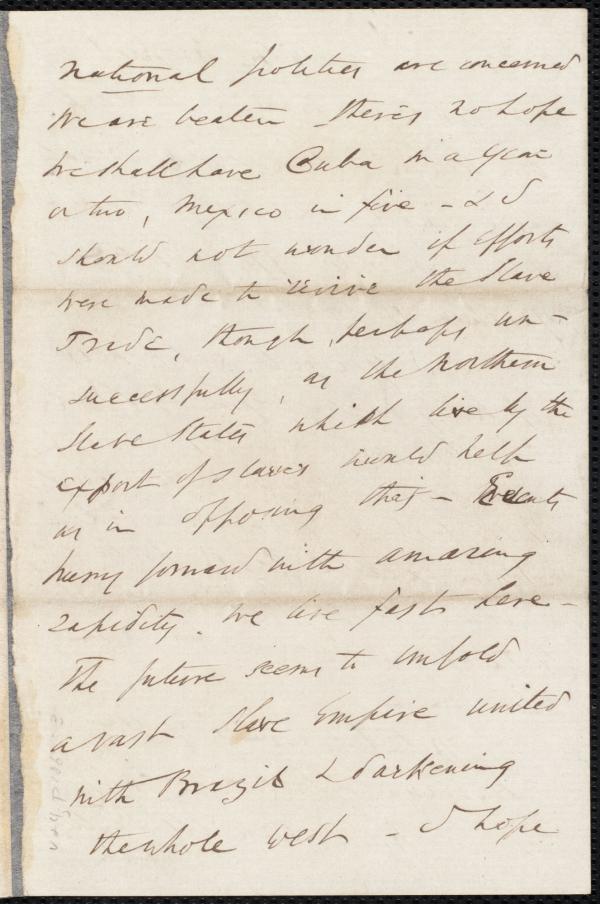 national politics are concerned
We are beaten there's no hope
We shall have Cuba in a year
or two, Mexico in five - & I
should not wonder if efforts
were made to revive the Slave
Trade, though, perhaps un-
successfully, as the Northern
Slave States which live by the
export of slaves would help
us in opposing that - Events
hurry forward with amazing
rapidity. We live fast here -
The future seems to unfold
a vast Slave Empire united
with Brazil & darkening
the whole west - I hope